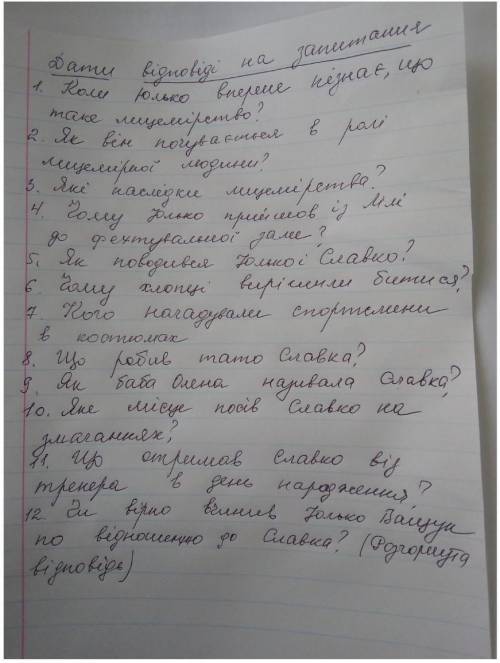 Дати відповіді на запитання
1. Коли Юлько вперше пізнає, що
таке лицемірство?
2. Як він почувається в ролі
лицемірної людини?
3. Які наслідки лицемірства?
4. Чому Юлько прийшов із Млі
до фехтувальної зали?
5. Як поводився Юлько і Славко?
6. Чому хлопці вирішили битися?
7. Кого нагадували спортсмени
в костюмах
8. Що робив тато Славка?
9. Як баба Олена називала Славка?
10. Яке місце посів Славко на
змаганнях?
11. Що отримав Славко від
тренера в день народження?
12. Чи вірно вчинив Юлько Ващук
по відношенню до Славка? (Розгорнута
відповідь)